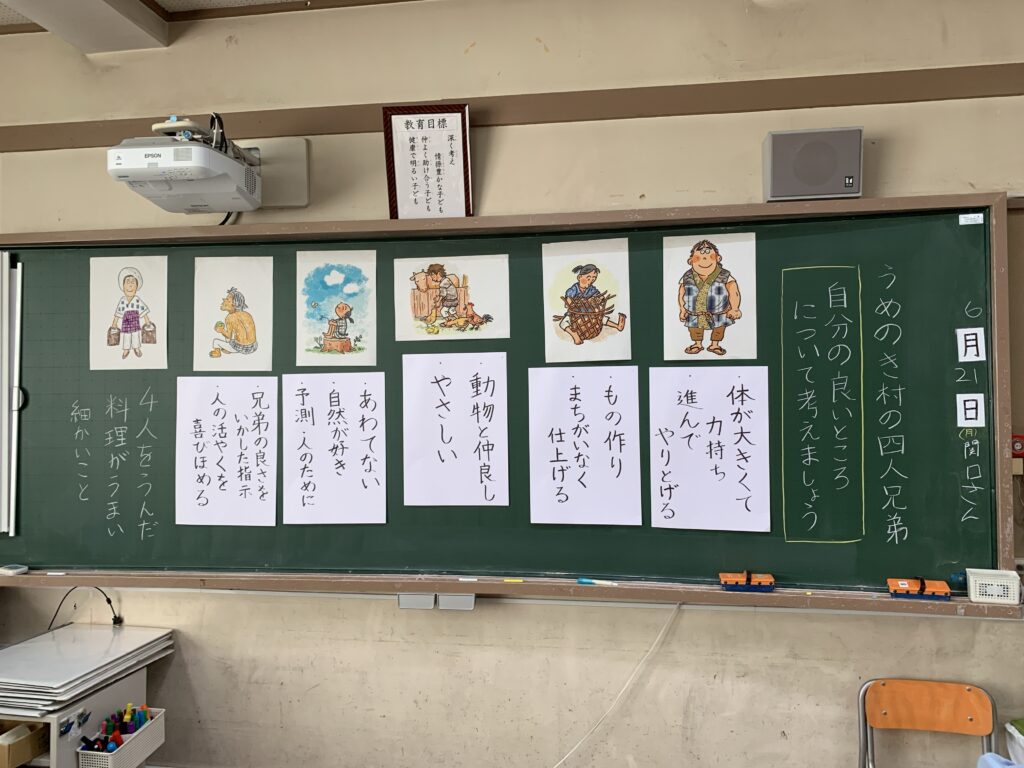 教育目標
深く考え
情操豊かな子ども
仲よく助け合う子ども
健康で明るい子ども
EPSON
6
月
21
日
(月)
関口さん
うめのき村の四人兄弟
自分の良いところ
について考えましょう
・体が大きくて
力持ち
・進んで
やりとげる
・もの作り
・まちがいなく
仕上げる
・動物と仲良し
・やさしい
・あわてない
・自然が好き
・予測・人のために
・兄弟の良さを
いかした指示
・人の活やくを
喜びほめる
4人をうんだ
料理がうまい
細かいこと